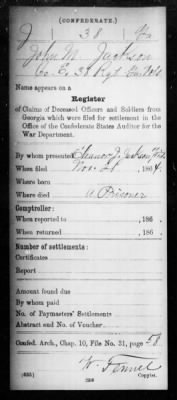 (CONFEDERATE.)
J 38 Ga
John N. Jackson
Co. E, 38 Regt.
Name appears on a
Register
of Claims of Deceased Officers and Soldiers from
Georgia which were filed for settlement in the
Office of the Confederate States Auditor for the
War Department.
By whom presented Eleanor J. Jackson
When filed Nov. 21, 1864.
Where born
Where died A Prisoner
Comptroller:
When reported to , 186 .
When returned , 186 .
Number of settlements:
Certificates
Report
Amount found due
By whom paid
No. of Paymasters' Settlements
Abstract end No. of Voucher
Confed. Arch., Chap. 10, File No. 31, page 58
W. Fennel
(635) Copyist.